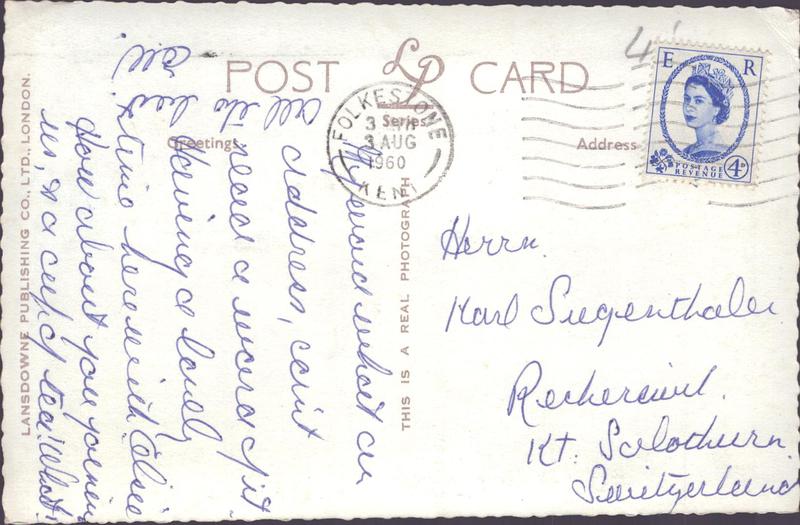 POST CARD
LP
Series
Greetings
Address
FOLKESTONE
3 AUG
1960
KENT
E R
POSTAGE
REVENUE
4D
4
My word what an
address, can't
read a word of it
all the best
Having a lovely
time here with
How about you joining
us, to a cup of tea. What!
all.
Herrn.
Karl Siegenthaler
Recherswil.
Kt. Solothurn.
Switzerland
THIS IS A REAL PHOTOGRAPH
LANSDOWNE PUBLISHING CO., LTD., LONDON.